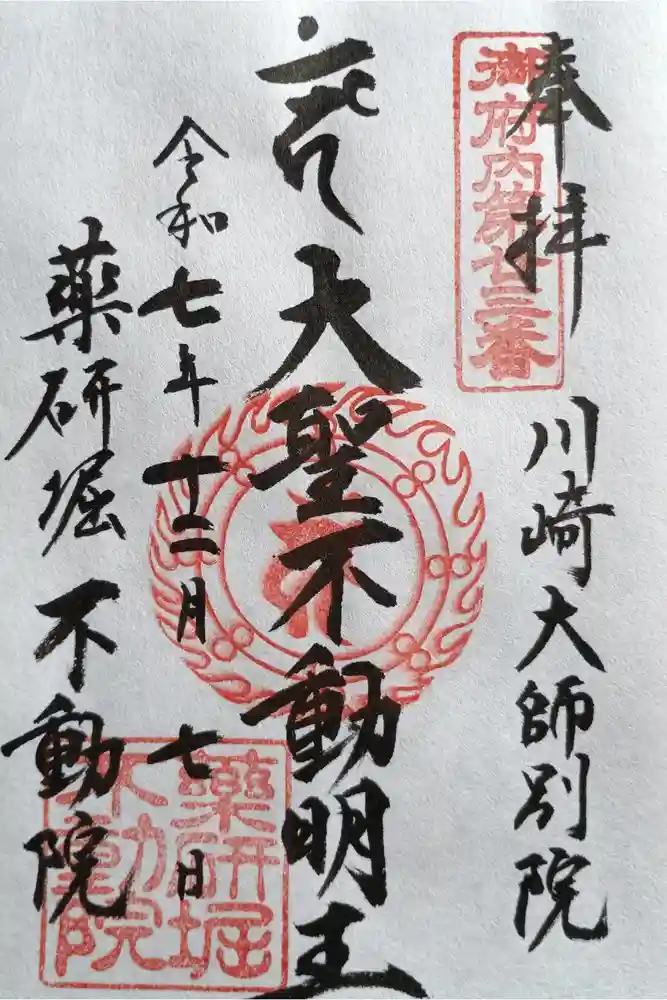 奉拝
御府内第廿二番
川崎大師別院
大聖不動明王
令和七年十二月七日
薬研堀不動院
薬研堀
不動院